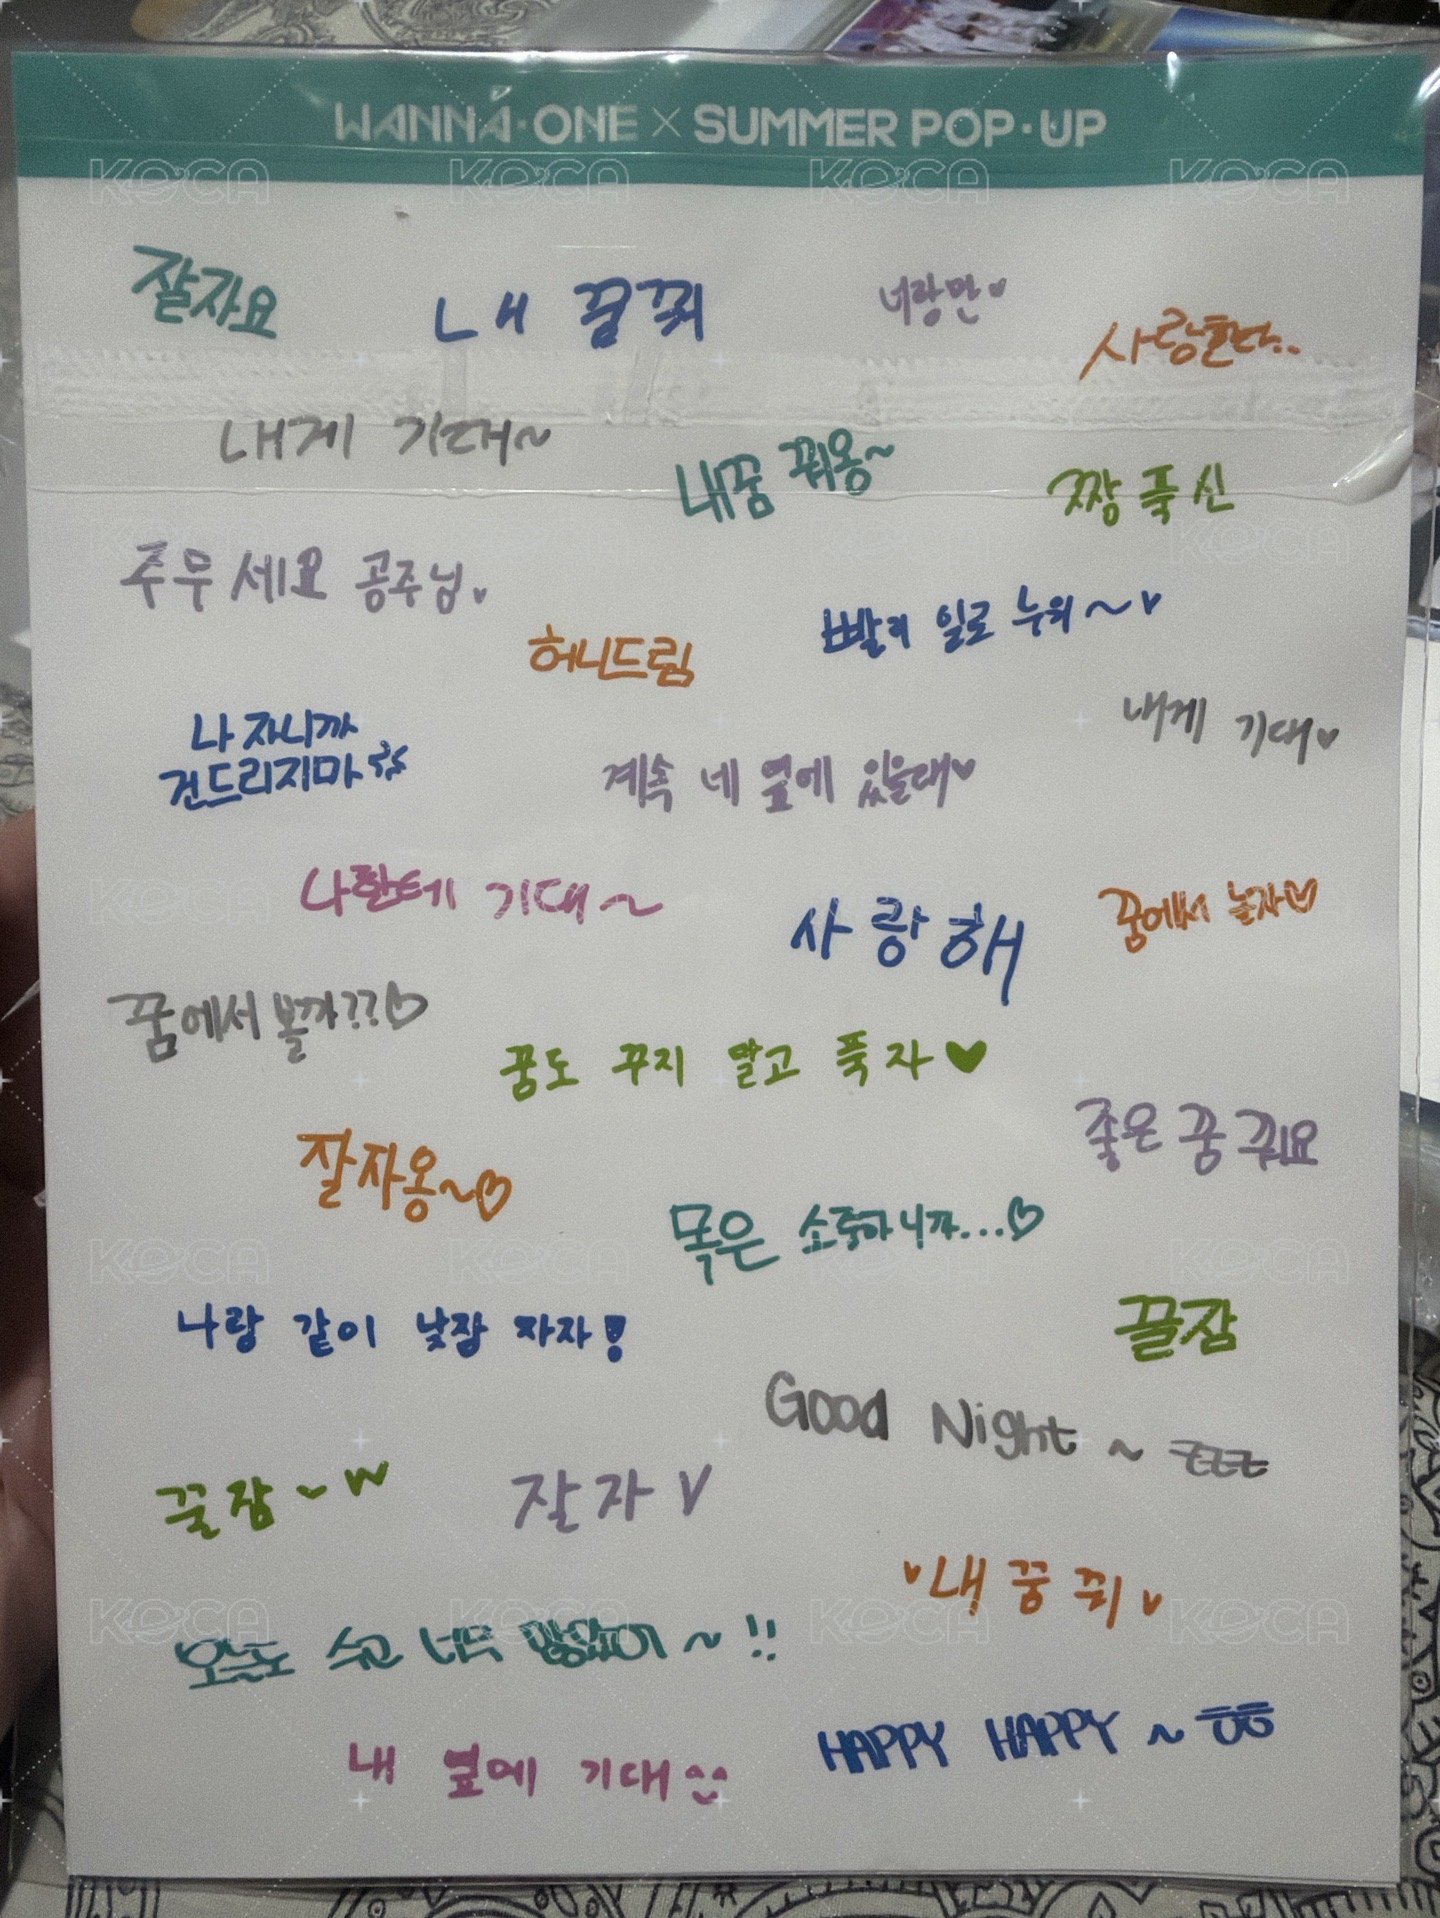 WANNA·ONE × SUMMER POP·UP
잘자요
내 꿈꿔
너랑만♥
사랑한다..
내게 기대~
내꿈 꿔용~
짱 푹신
주무세요 공주님♥
빨리 일로 누워~♥
허니드림
나 자니까
건드리지마
내게 기대♥
계속 네 옆에 있을대♥
나한테 기대~
사랑해
꿈에서 놀자♡
꿈에서 볼까??♡
꿈도 꾸지 말고 푹 자♥
좋은 꿈 꿔요
잘자용~♡
목은 소중하니까...♡
나랑 같이 낮잠 자자!
꿀잠
Good Night ~ zzz
꿀잠~w
잘자 V
♥내 꿈 꿔♥
오늘도 수고 너무 많았어~!!
HAPPY HAPPY ~ ㅎㅎ
내 옆에 기대^^
KOCA
KOCA
KOCA
KOCA
KOCA
KOCA
KOCA
KOCA
KOCA
KOCA
KOCA
KOCA
KOCA
KOCA